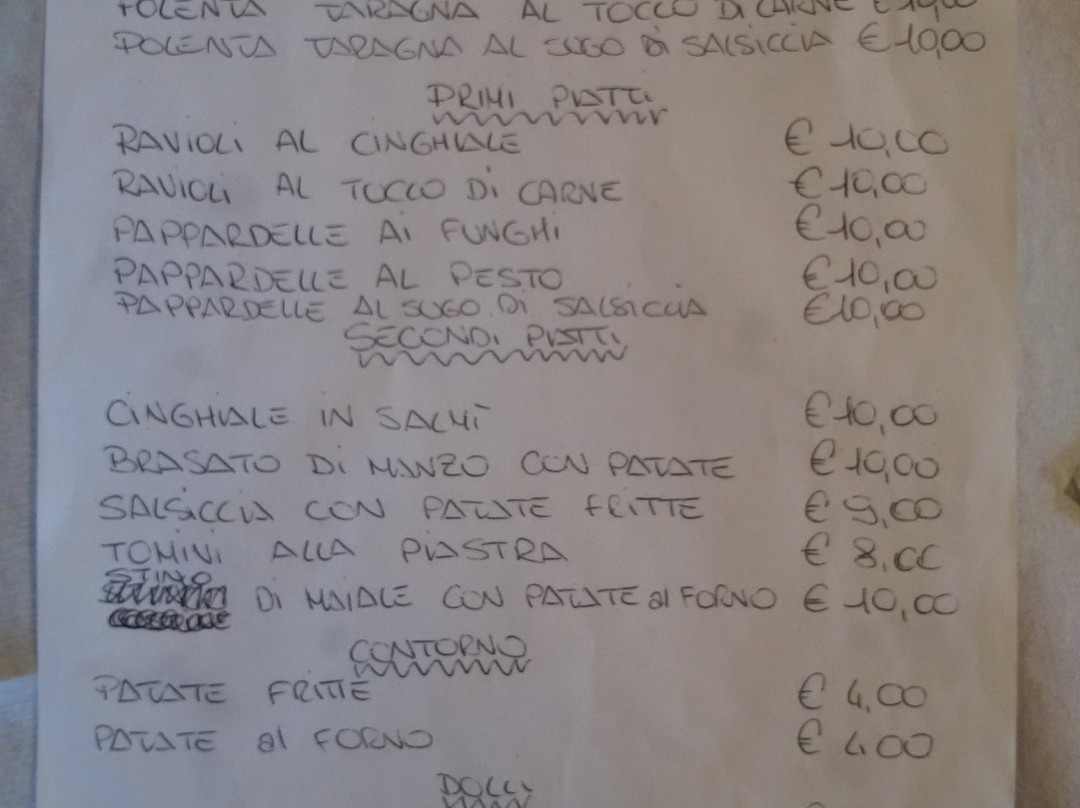 POLENTA TARAGNA AL TOCCO DI CARNE € 10,00
POLENTA TARAGNA AL SUGO DI SALSICCIA € 10,00
PRIMI PIATTI
RAVIOLI AL CINGHIALE € 10,00
RAVIOLI AL TOCCO DI CARNE € 10,00
PAPPARDELLE AI FUNGHI € 10,00
PAPPARDELLE AL PESTO € 10,00
PAPPARDELLE AL SUGO DI SALSICCIA €10,00
SECONDI PIATTI
CINGHIALE IN SALMÌ € 10,00
BRASATO DI MANZO CON PATATE € 10,00
SALSICCIA CON PATATE FRITTE € 9,00
TOMINI ALLA PIASTRA € 8,00
STINO DI MAIALE CON PATATE al FORNO € 10,00
CONTORNO
PATATE FRITTE € 4,00
PATATE al FORNO € 4,00
DOLCI